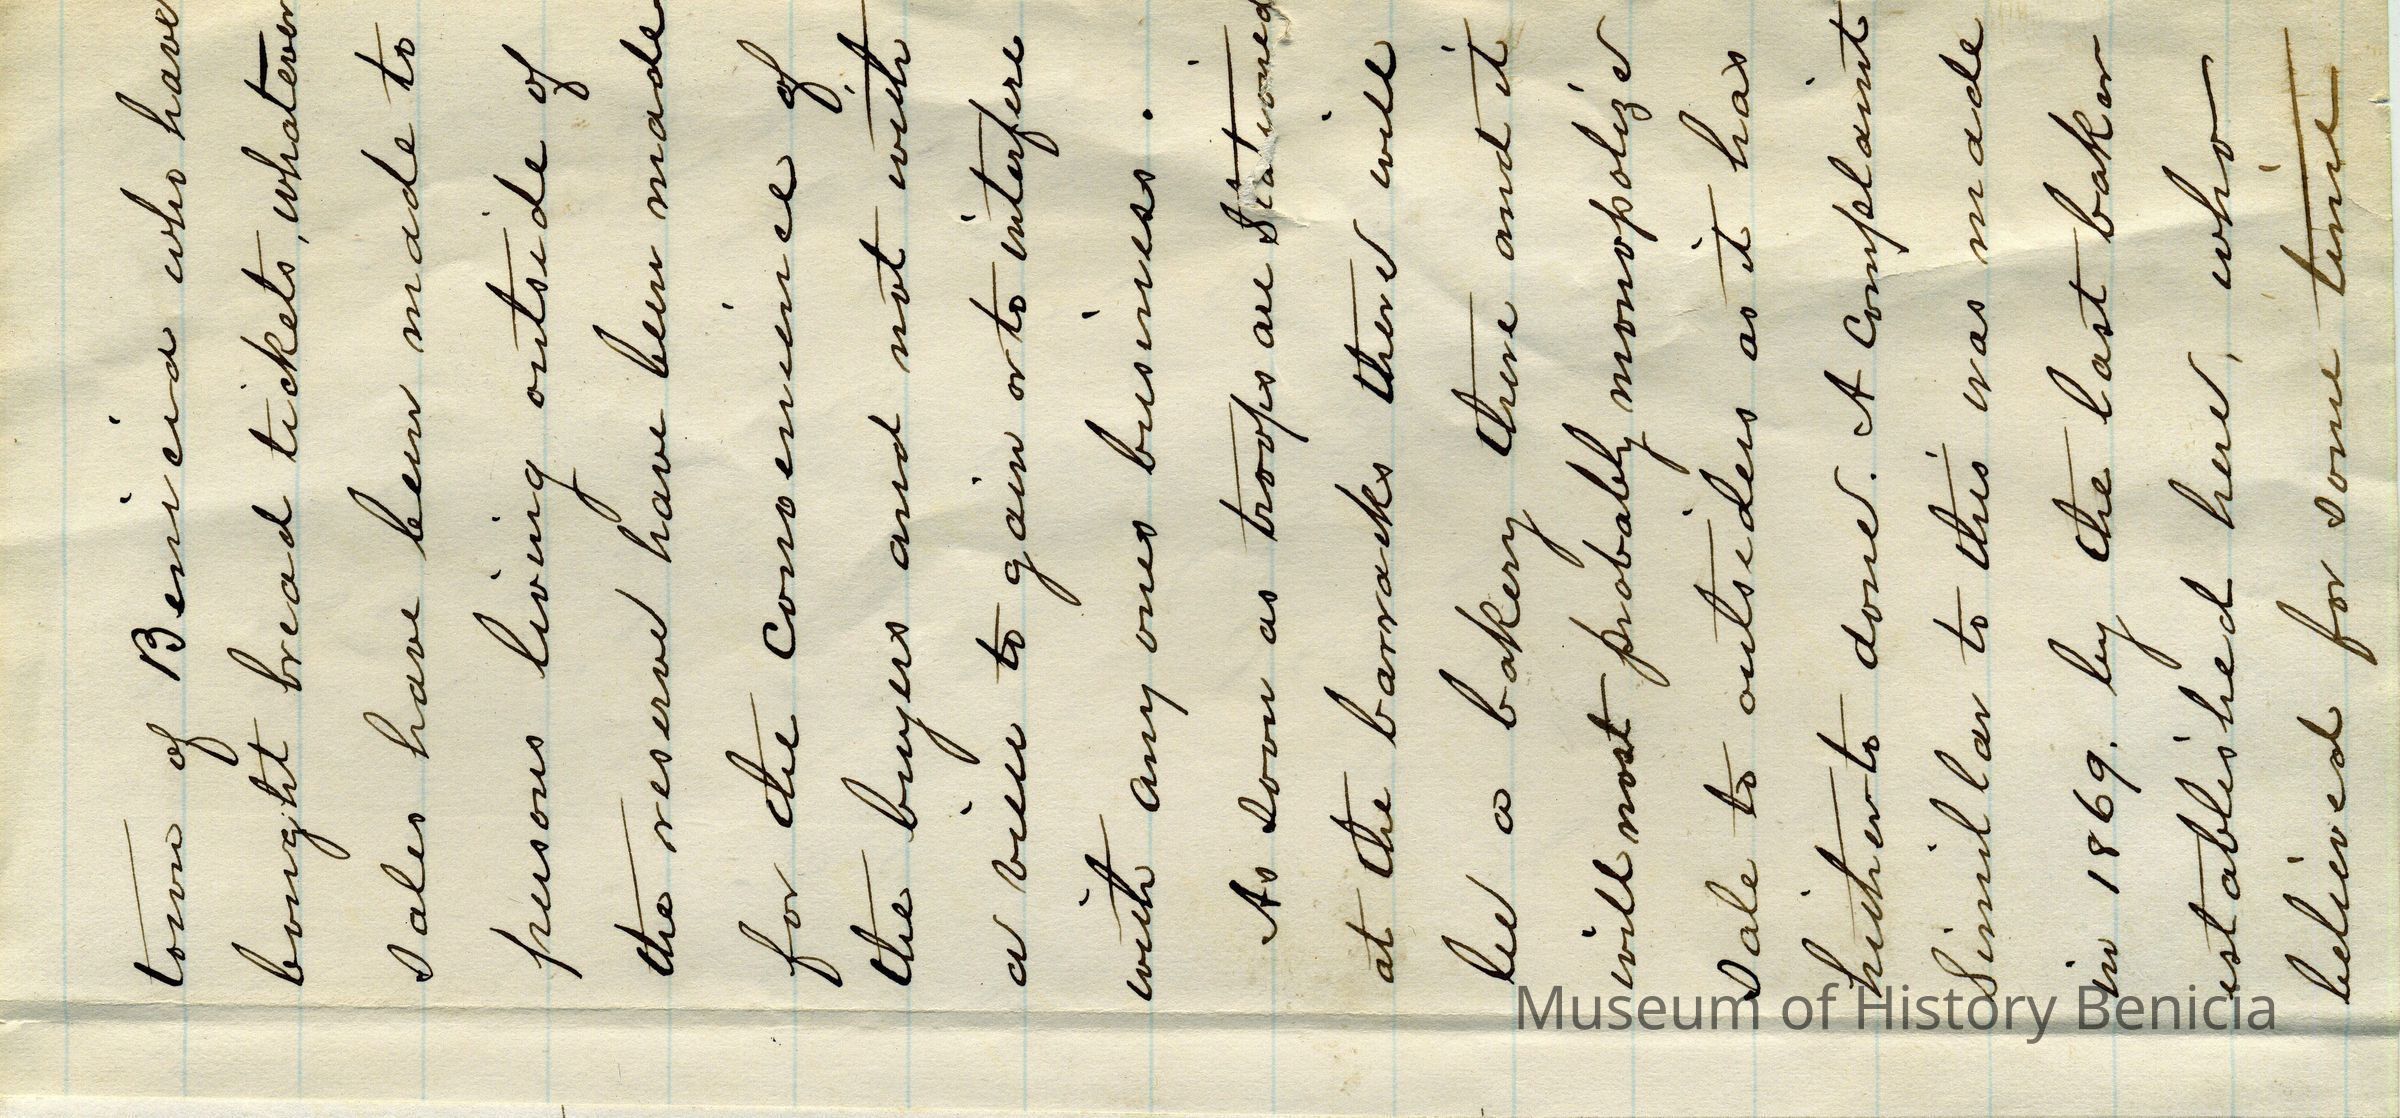 town of Benicia who have
bought bread tickets, whatever
sales have been made to
persons living outside of
the reserve have been made
for the convenience of
the buyers and not with
a view to gain or to interfere
with any ones business.
As soon as troops are stationed
at the barracks there will
be a bakery there and it
will most probably monopolize
sale to outsiders as it has
hitherto done. A complaint
similar to this was made
in 1869. by the last baker
established here, who
believed for some time
Museum of History Benicia